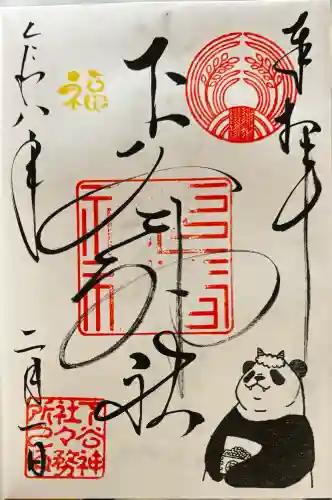 奉拝
下谷神社
福
令和八年
二月一日
下谷神
社々務
所之印